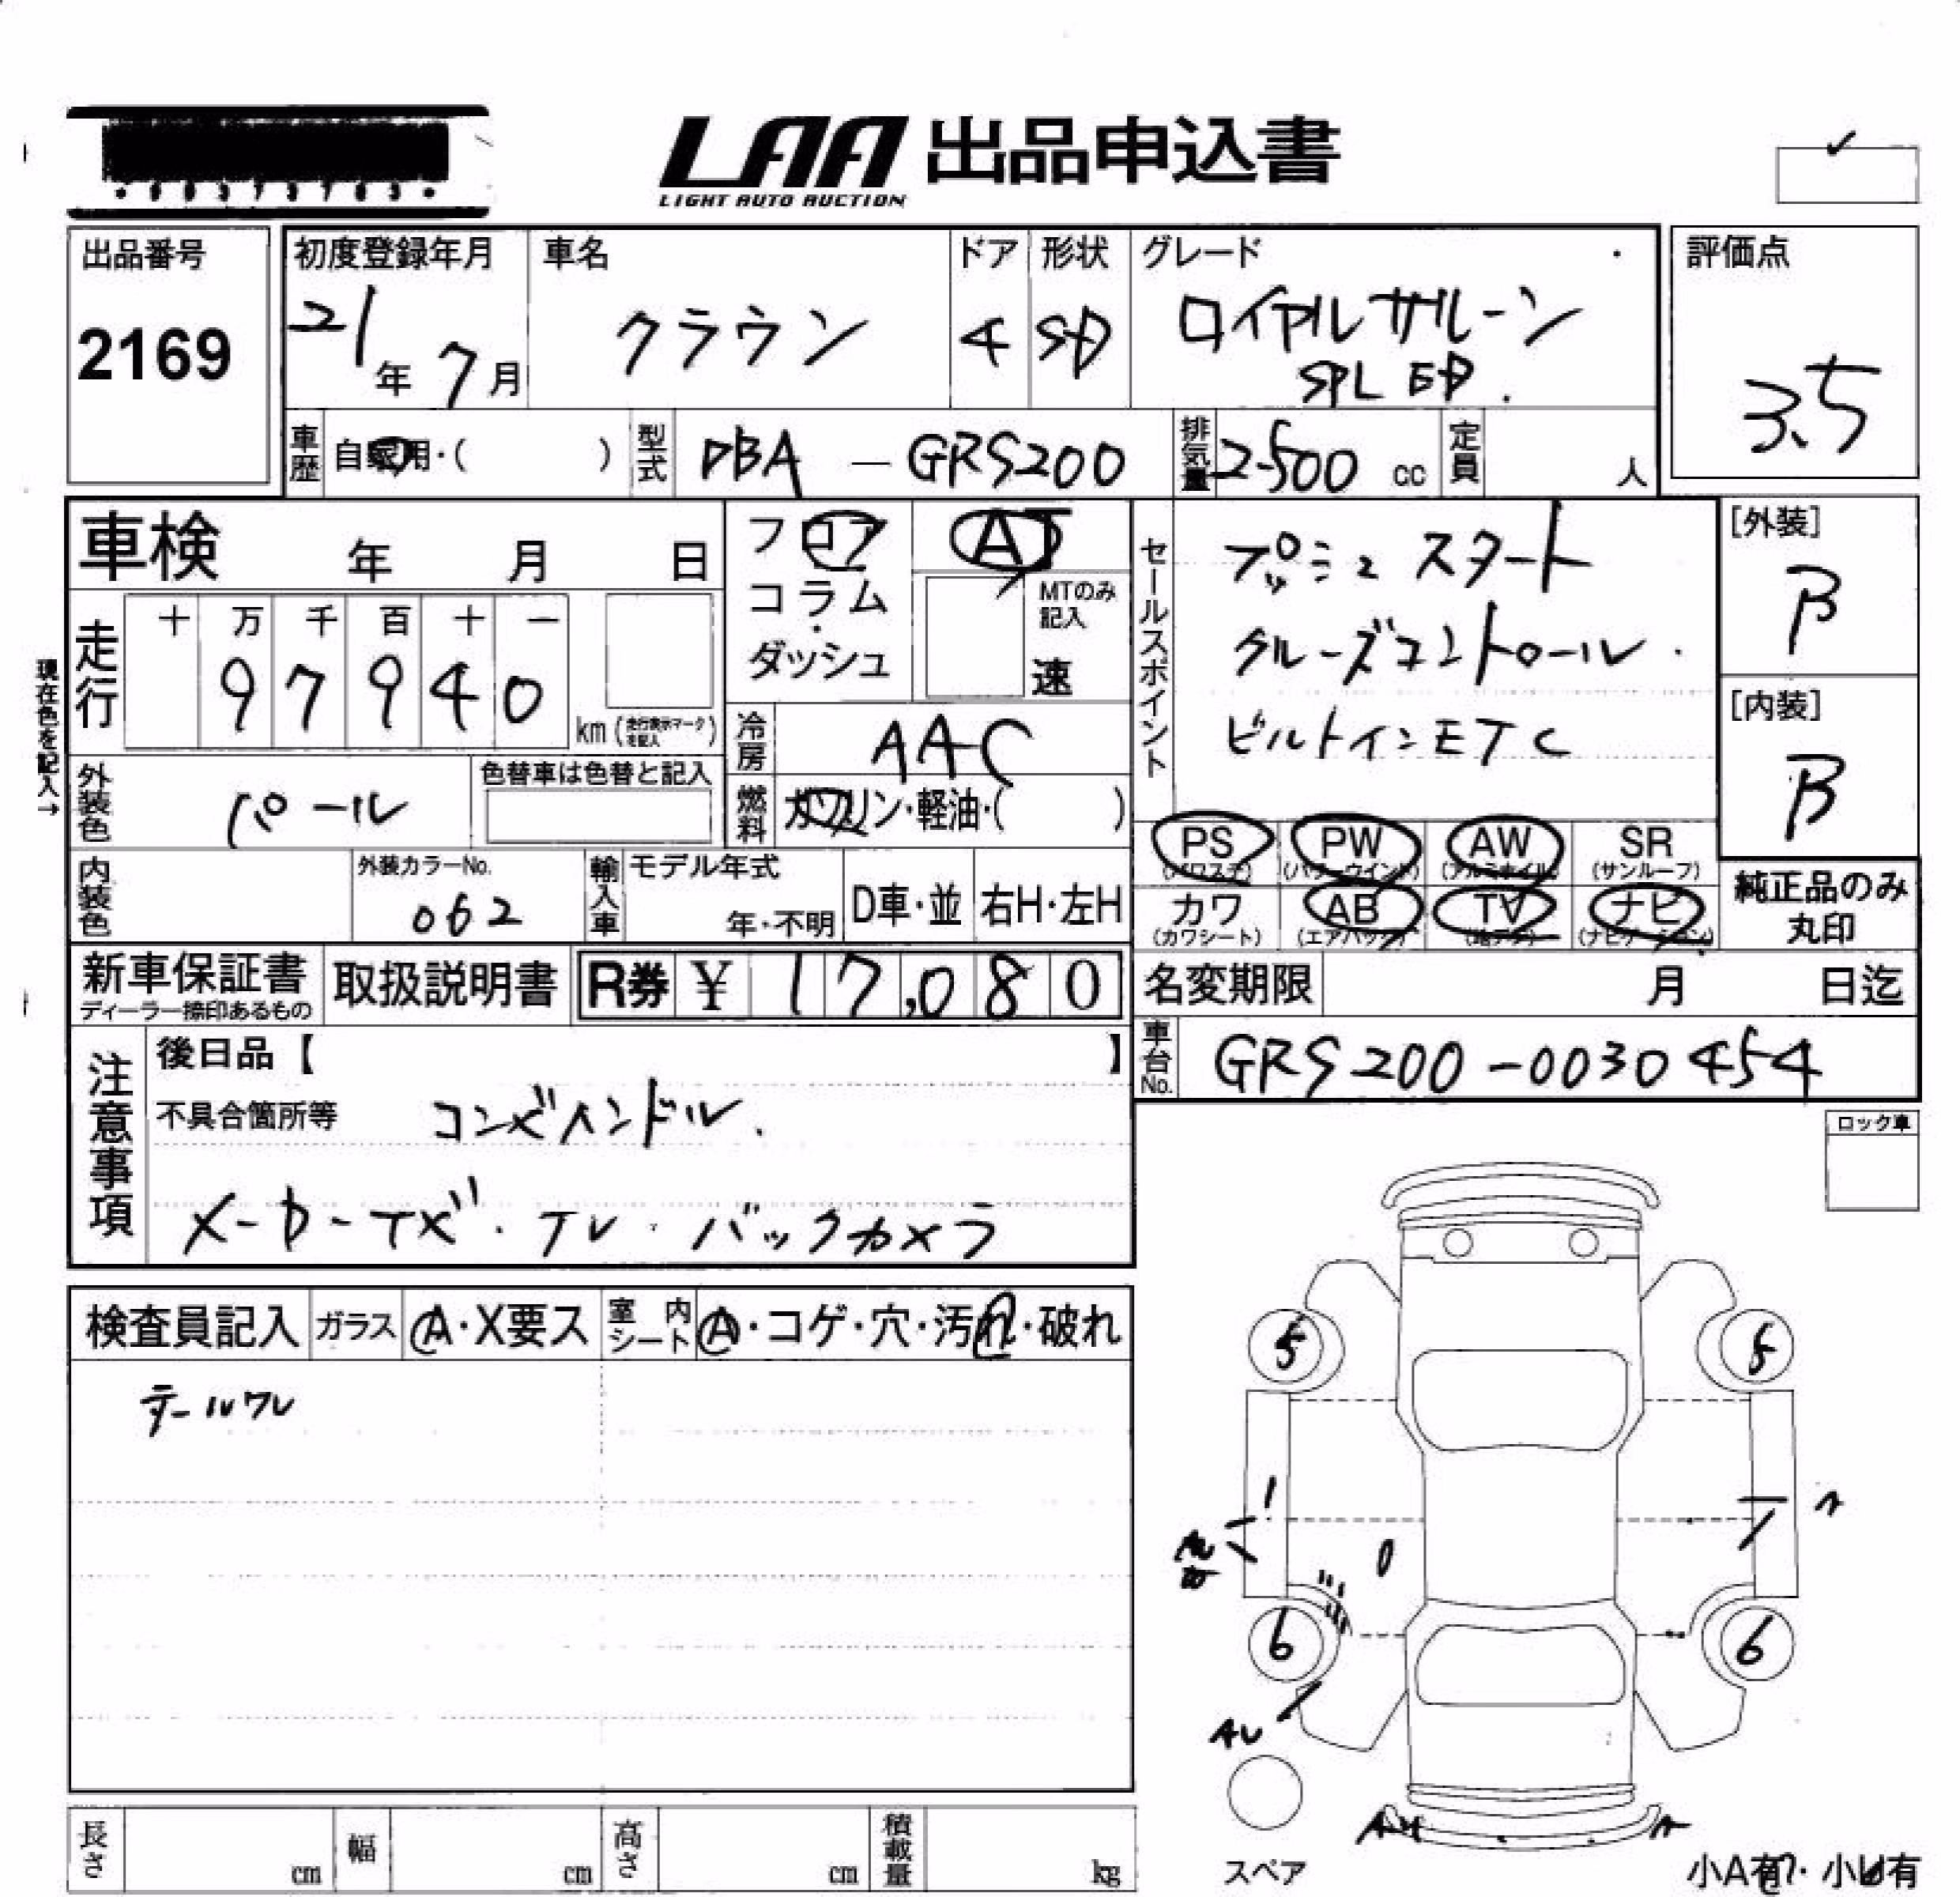 LAA 出品申込書
LIGHT AUTO AUCTION
出品番号
2169
初度登録年月
21年 7月
車名
クラウン
ドア
4
形状
SD
グレード
ロイヤルサルーン
SPL ED.
評価点
3.5
車歴
自家用・( )
型式
DBA - GRS200
排気量
2500 cc
定員
人
車検 年 月 日
フロア
コラム
・
ダッシュ
AT
MTのみ
記入
速
走行
十 万 千 百 十 一
9 7 9 4 0
km (走行表示マークを記入)
現在色を記入→
冷房
AAC
燃料
ガソリン・軽油・( )
外装色
パール
色替車は色替と記入
内装色
外装カラーNo.
062
輸入車
モデル年式
年・不明
D車・並
右H・左H
セールスポイント
プッシュ スタート
クルーズコントロール.
ビルトインETC
[外装]
B
[内装]
B
PS
(パワステ)
PW
(パワーウインド)
AW
(アルミホイル)
SR
(サンルーフ)
カワ
(カワシート)
AB
(エアバック)
TV
(地デジ)
ナビ
(ナビゲーション)
純正品のみ
丸印
新車保証書
ディーラー捺印あるもの
取扱説明書
R券 ¥ 17,080
名変期限 月 日迄
車台No.
GRS200-0030454
注意事項
後日品【 】
不具合箇所等 コンビハンドル.
メーカーナビ・TV・バックカメラ
ロック車
検査員記入
ガラス
A・X要ス
室内
シート
A・コゲ・穴・汚れ・破れ
テールワレ
5
5
6
6
AU
スペア
小A有・小U有
長さ cm
幅 cm
高さ cm
積載量 kg